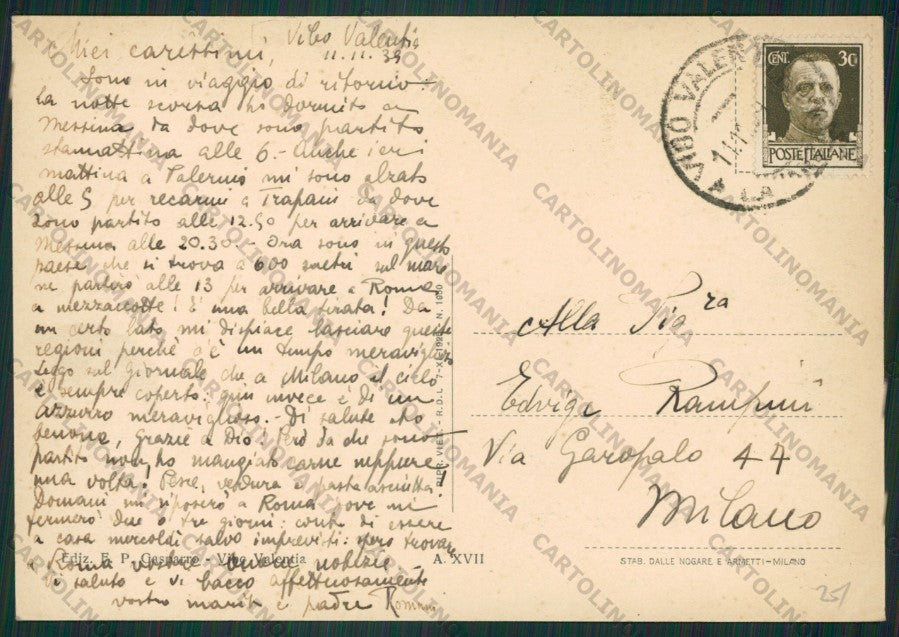 Vibo Valentia
Miei carissimi, 11.11.39
Sono in viaggio di ritorno
La notte scorsa ho dormito a
Messina da dove sono partito
stamattina alle 6.- Anche ieri
mattina a Palermo mi sono alzato
alle 5 per recarmi a Trapani da dove
sono partito alle 12.50 per arrivare a
Messina alle 20.30.- Ora sono in questo
paese che si trova a 600 metri sul mare
ne partirò alle 13 per arrivare a Roma
a mezzanotte! E' una bella tirata! Da
un certo lato mi dispiace lasciare queste
regioni perchè c'è un tempo meraviglioso
Leggo sul giornale che a Milano il cielo
è sempre coperto: quì invece è di un
azzurro meraviglioso.- Di salute sto
benone, grazie a Dio! Però da che sono
partito non ho mangiato carne neppure
una volta! Pesce, verdura e pasta asciutta!
Domani mi riposerò a Roma dove mi
fermerò due o tre giorni: conto di essere
a casa mercoldì salvo imprevisti: spero trovare
a Roma vostre notizie
Vi saluto e vi bacio affettuosamente
vostro marito e padre
Ediz. E. P. Gasparro - Vibo Valentia
A. XVII
RIPR. VIET. - R.D.L. 7-XI-1925 N. 1950
VIBO VALENTIA
CENT. 30
POSTE ITALIANE
Alla Sig.ra
Edvige Rampini
Via Garofalo 44
Milano
STAB. DALLE NOGARE E ARMETTI-MILANO
25/
CARTOLINOMANIA